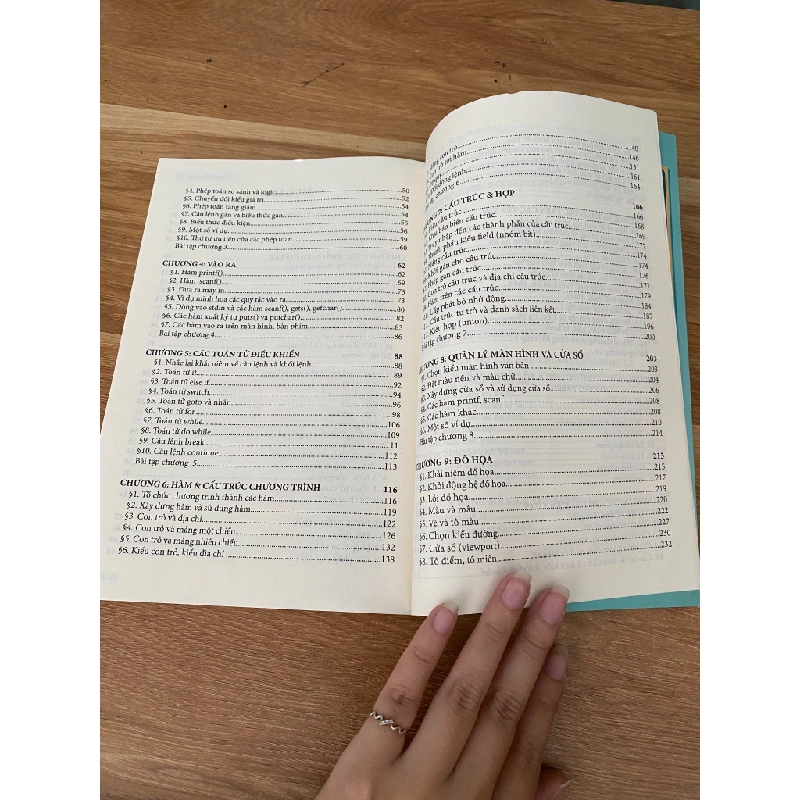 §4. Phép toán so sánh và logic 50
§5. Chuyển đổi kiểu giá trị 52
§6. Phép toán tăng giảm 54
§7. Câu lệnh gán và biểu thức gán 54
§8. Biểu thức điều kiện 55
§9. Một số ví dụ 56
§10. Thứ tự ưu tiên của các phép toán 59
Bài tập chương 3 60
CHƯƠNG 4: VÀO RA 62
§1. Hàm printf() 62
§2. Hàm scanf() 69
§3. Đưa ra máy in 73
§4. Ví dụ minh họa các quy tắc vào ra 73
§5. Dòng vào stdin và các hàm scanf(), gets(), getchar() 80
§6. Các hàm xuất ký tự puts() và putchar() 82
§7. Các hàm vào ra trên màn hình, bàn phím 83
Bài tập chương 4 86
CHƯƠNG 5: CÁC TOÁN TỬ ĐIỀU KHIỂN 88
§1. Nhắc lại khái niệm về câu lệnh và khối lệnh 88
§2. Toán tử if 89
§3. Toán tử else if 92
§4. Toán tử switch 94
§5. Toán tử goto và nhãn 96
§6. Toán tử for 98
§7. Toán tử while 106
§8. Toán tử do while 109
§9. Câu lệnh break 111
§10. Câu lệnh continue 112
Bài tập chương 5 113
CHƯƠNG 6: HÀM & CẤU TRÚC CHƯƠNG TRÌNH 116
§1. Tổ chức chương trình thành các hàm 116
§2. Xây dựng hàm và sử dụng hàm 119
§3. Con trỏ và địa chỉ 122
§4. Con trỏ và mảng một chiều 126
§5. Con trỏ và mảng nhiều chiều 132
§6. Kiểu con trỏ, kiểu địa chỉ 133
146
161
164
CẤU TRÚC & HỢP 166
cấu trúc 166
báo biến cấu trúc 168
đến các thành phần của cấu trúc
phần kiểu field (nhóm bit)
cấu trúc
cho cấu trúc 174
gán cấu trúc
trỏ cấu trúc và địa chỉ cấu trúc 174
trên các cấu trúc 179
Cấp phát bộ nhớ động
Cấu trúc tự trỏ và danh sách liên kết 187
Kiểu hợp (union) 196
tập chương 7 200
CHƯƠNG 8: QUẢN LÝ MÀN HÌNH VÀ CỬA SỔ 203
§1. Chọn kiểu màn hình văn bản
§2. Đặt màu nền và màu chữ 204
§3. Xây dựng cửa sổ và sử dụng cửa sổ
§4. Các hàm printf, scanf
§5. Các hàm khác 208
§6. Một số ví dụ 211
Bài tập chương 8 214
CHƯƠNG 9: ĐỒ HỌA 215
§1. Khái niệm đồ họa 215
§2. Khởi động hệ đồ họa 217
§3. Lỗi đồ họa 219
§4. Màu và mẫu 220
§5. Vẽ và tô màu 222
§6. Chọn kiểu đường 227
§7. Cửa sổ (viewport) 230
§8. Tô điểm, tô miền 231